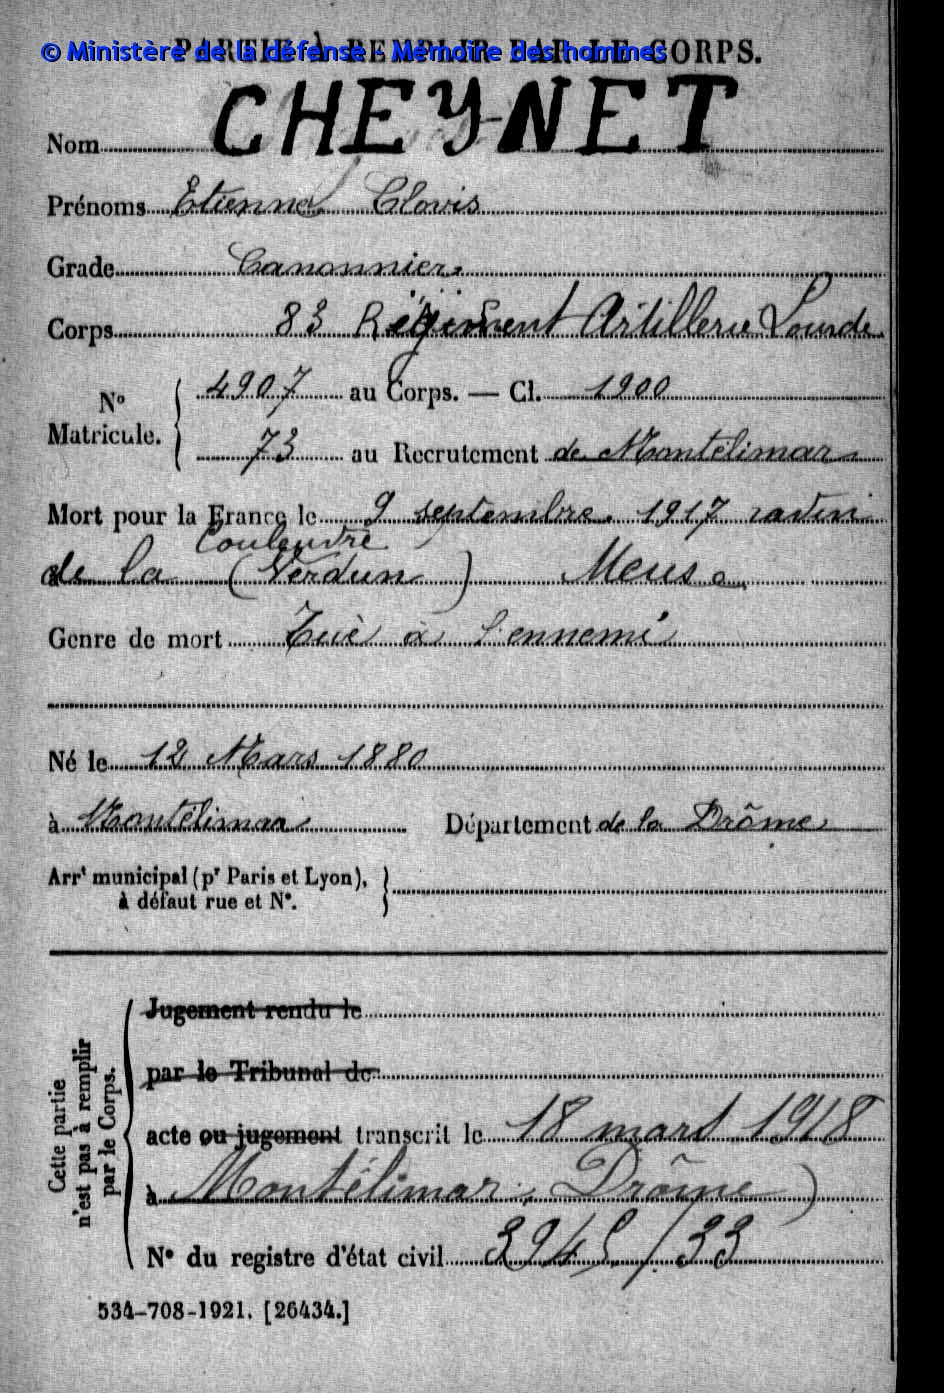 PARTIE À REMPLIR PAR LE CORPS.
© Ministère de la défense - Mémoire des hommes
Nom CHEYNET
Prénoms Etienne Clovis
Grade Canonnier
Corps 83 Régiment Artillerie Lourde
N° Matricule. { 4907 au Corps. — Cl. 1900
73 au Recrutement de Montélimar
Mort pour la France le 9 septembre 1917 ravin
Couleuvre
de la (Verdun) Meuse
Genre de mort Tué à l'ennemi
Né le 12 Mars 1880
à Montélimar Département de la Drôme
Arrt municipal (pr Paris et Lyon), }
à défaut rue et N°.
Cette partie
n'est pas à remplir
par le Corps.
Jugement rendu le
par le Tribunal de
acte ou jugement transcrit le 18 mars 1918
à Montélimar, Drôme)
N° du registre d'état civil 3945/33
534-708-1921. [26434.]